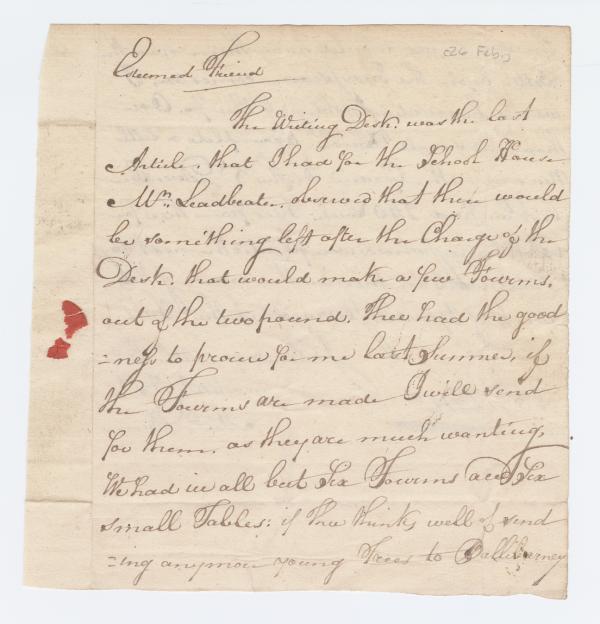 26 Feb.
Esteemed Friend
The Writing Desk. was the last
Article. that I had for the School House
Wm. Leadbeater. observed that there would
be something left after the Charge of the
Desk. that would make a few Fourms.
out of the two pound. Thee had the good
=ness to procure for me last Summer, if
the Fourms are made I will send
for them. as they are much wanting,
We had in all but Six Fourms and Six
small Tables: if thee think, well of send
=ing anymore young Trees to Ballibarney